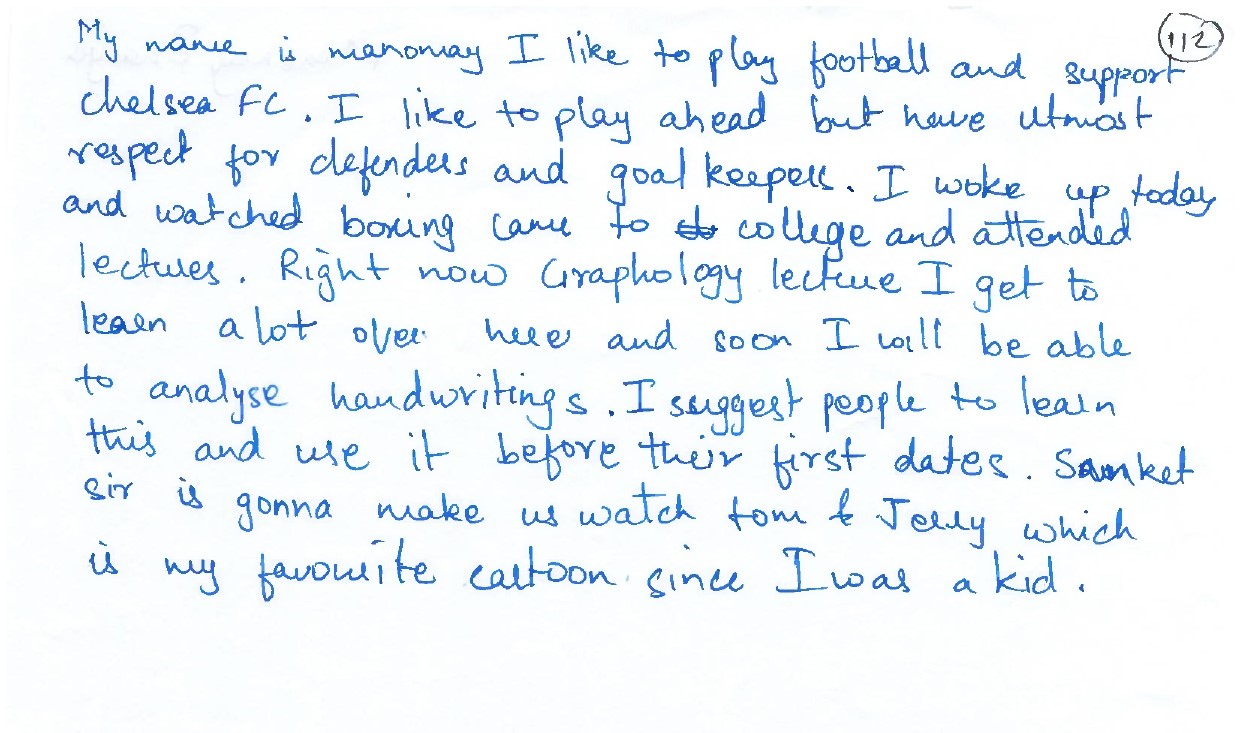 112
My name is manomay I like to play football and support
chelsea FC. I like to play ahead but have utmost
respect for defenders and goal keepers. I woke up today
and watched boxing came to college and attended
lectures. Right now Graphology lecture I get to
learn a lot over here and soon I will be able
to analyse handwritings. I suggest people to learn
this and use it before their first dates. Sanket
sir is gonna make us watch tom & Jerry which
is my favourite cartoon since I was a kid.